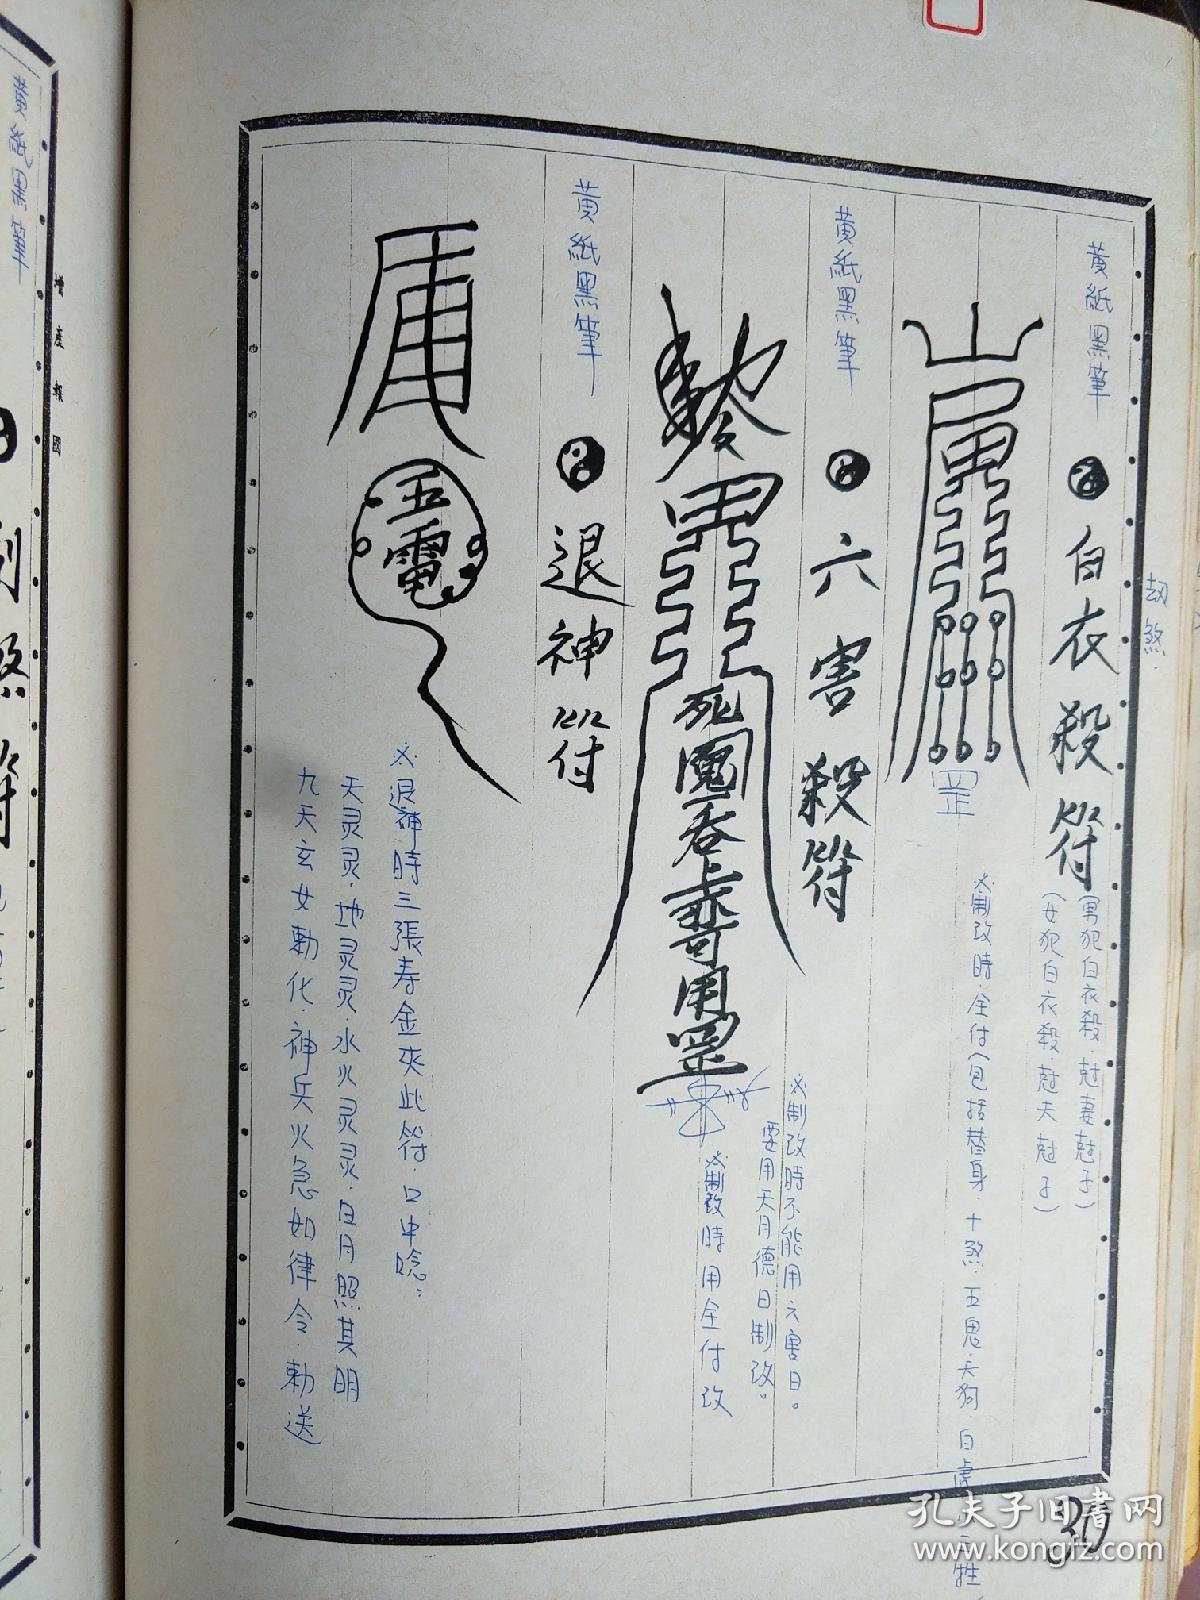 黄紙黑筆
白衣殺符
(男犯白衣殺.尅妻尅子)
(女犯白衣殺.尅夫尅子)
劫煞.
罡
制改時.全付(包括替身 十煞.五鬼.天狗.白虎
三牲
黄紙黑筆
六害殺符
死
吞
用罡
制改時不能用六害日。
要用天月德日制改。
制改時用全付改
黄紙黑筆
退神符
五雷
退神時三張寿金夾此符.口中唸:
天灵灵.地灵灵.水火灵灵.日月照其明
九天玄女勅化.神兵火急如律令.勅送
黄紙黑筆
增產報國
制煞符
30
孔夫子旧书网
www.kongfz.com